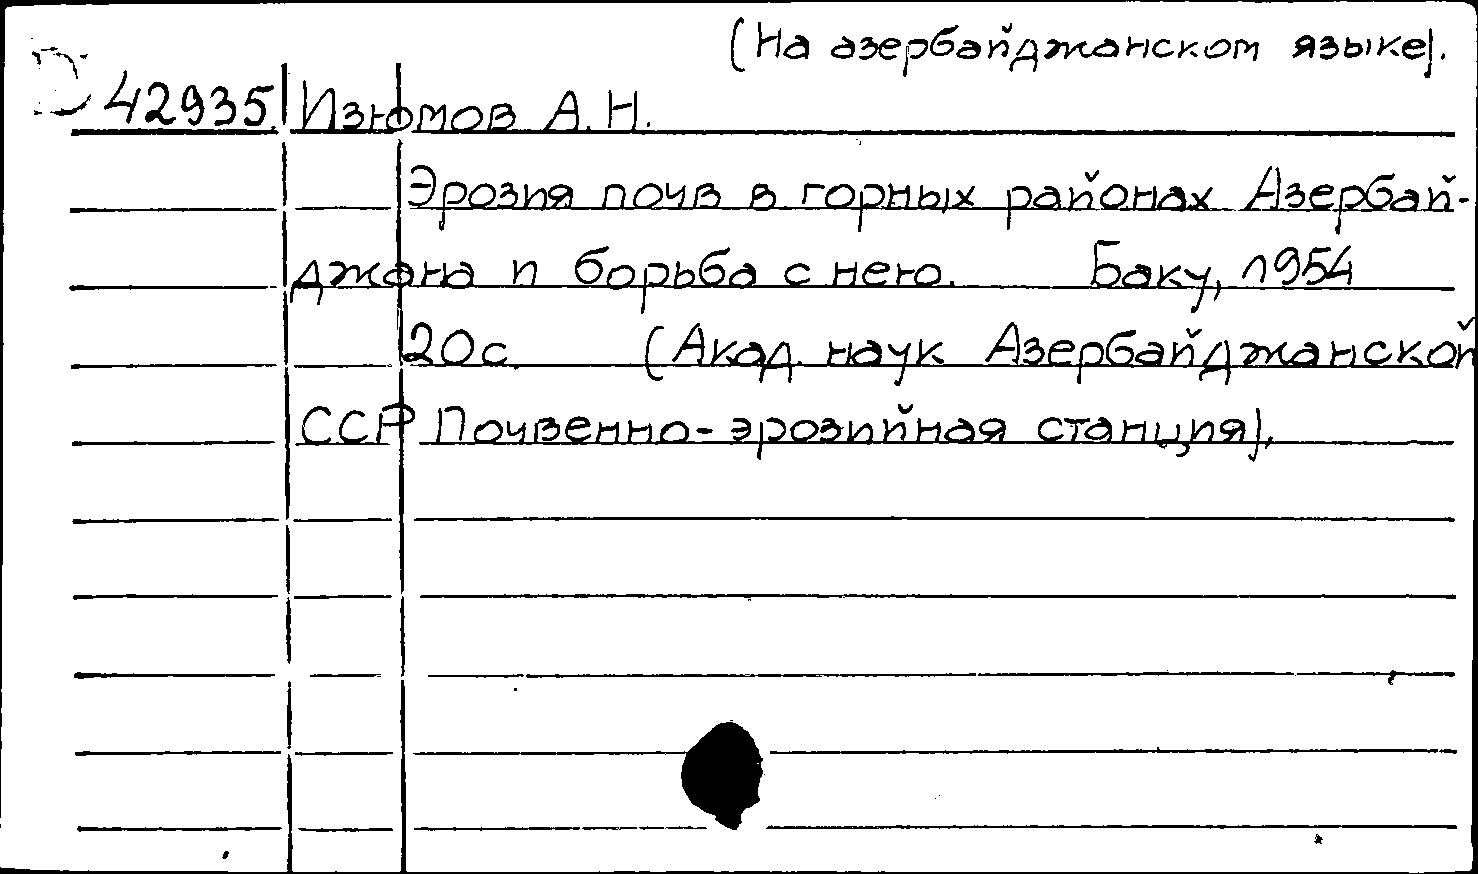 (На азербайджанском языке).
D 42935 Изюмов А.Н.
Эрозия почв в горных районах Азербай-
джана и борьба с нею. Баку, 1954
20с. (Акад. наук Азербайджанской
ССР Почвенно-эрозийная станция).